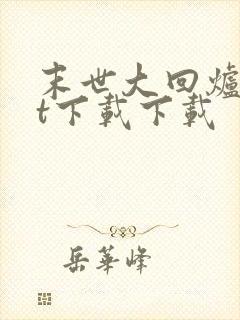 末世大回爐
t下載下載
岳華峰